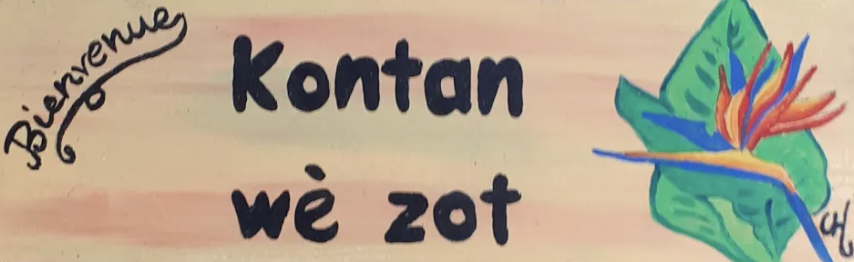 Bienvenue
Kontan
wè zot
CH